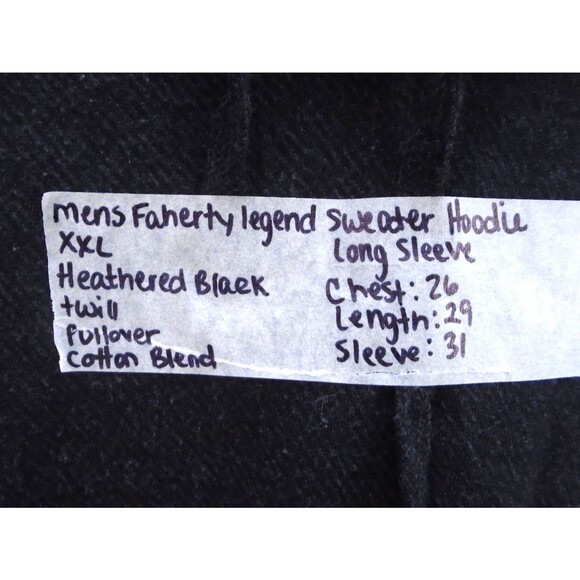 mens Faherty legend Sweater Hoodie
XXL
Heathered Black
twill
Pullover
Cotton Blend
Long Sleeve
Chest: 26
Length: 29
Sleeve: 31